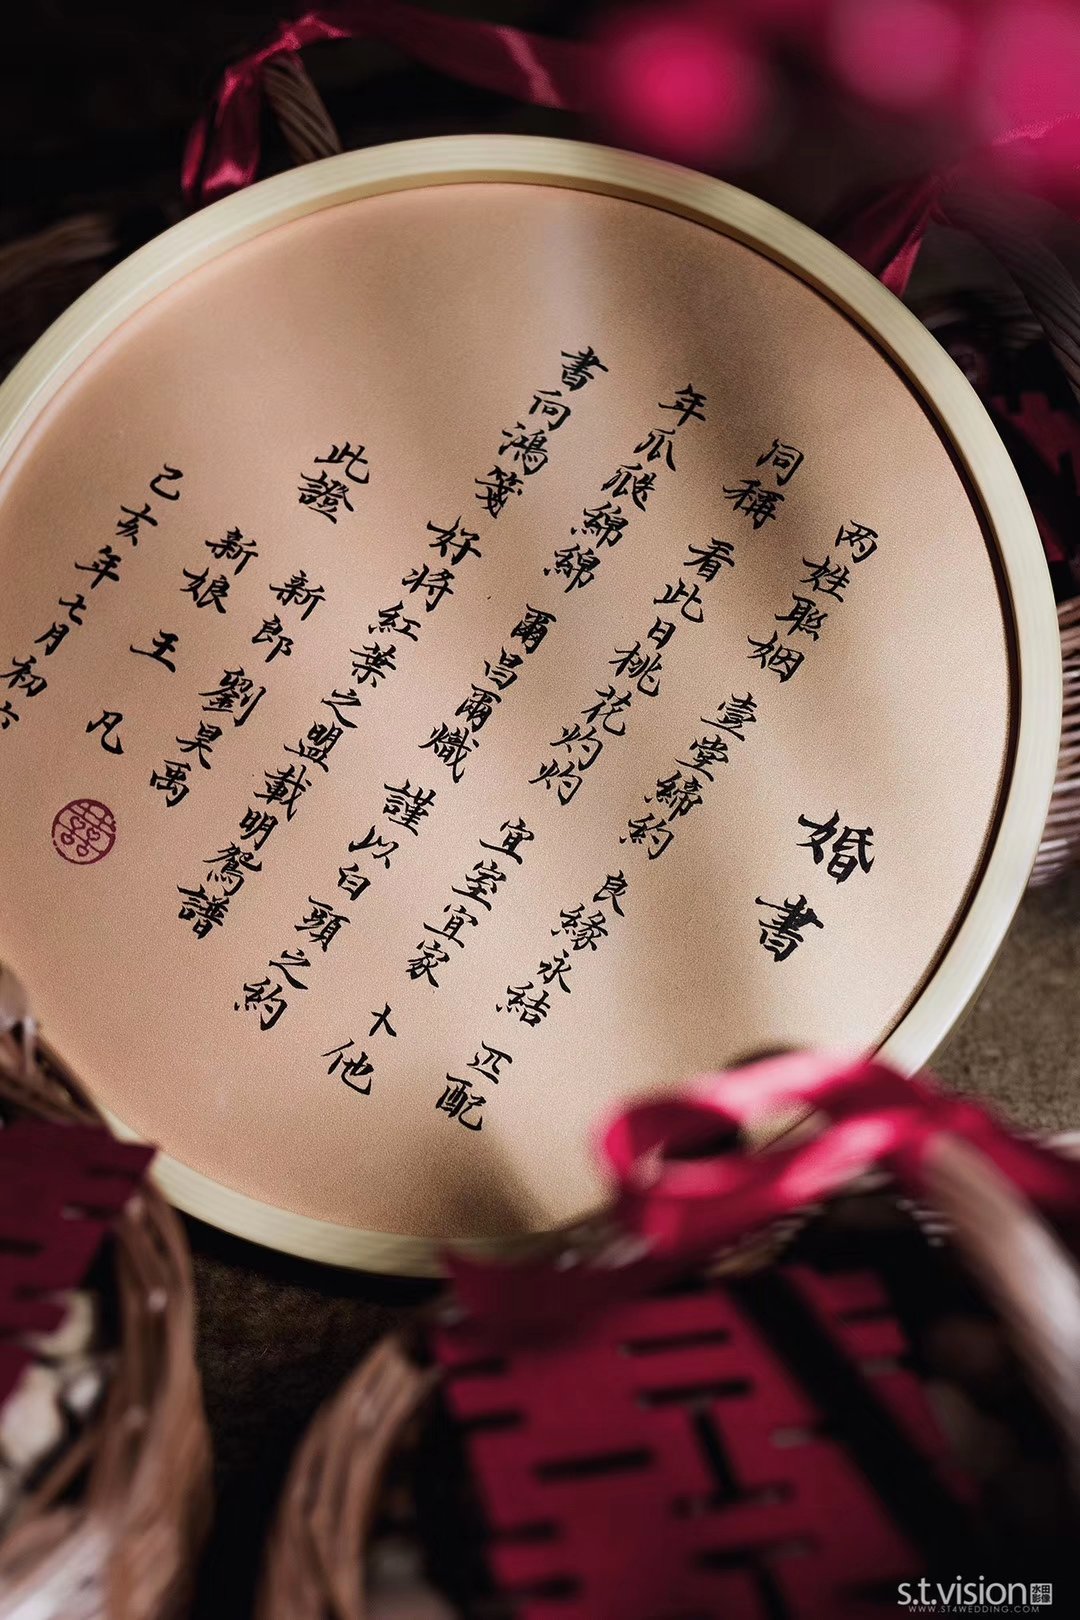 婚書
两姓聯姻 壹堂締約 良緣永結 匹配
同稱 看此日桃花灼灼 宜室宜家 卜他
年瓜瓞綿綿 爾昌爾熾 謹以白頭之約
書向鴻箋 好將紅葉之盟載明鴛譜
此證
新郎 劉昊禹
新娘 王 凡
己亥年七月初六
囍
s.t.vision 水田影像
WWW.ST4WEDDING.COM